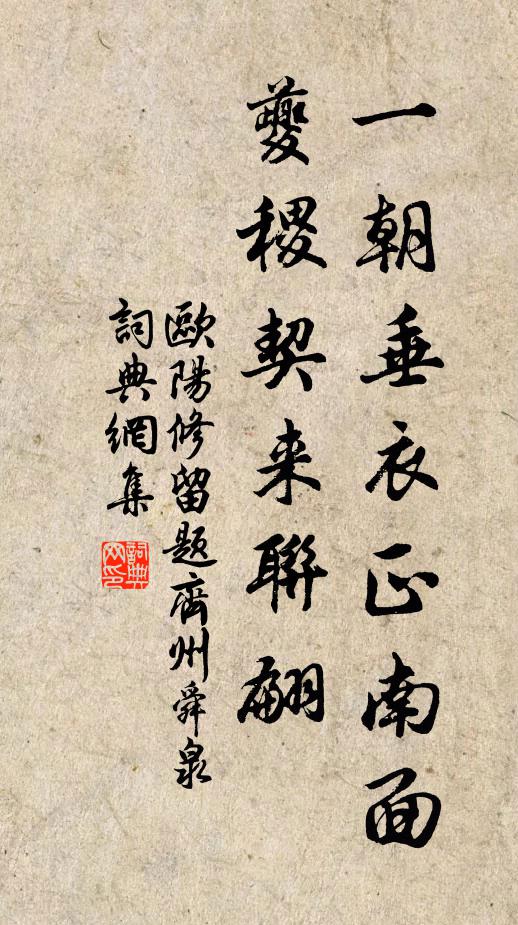 一朝垂衣正南面
夔稷契来聯翩
歐陽修留題齊州舜泉
詞典網集
詞典
网印